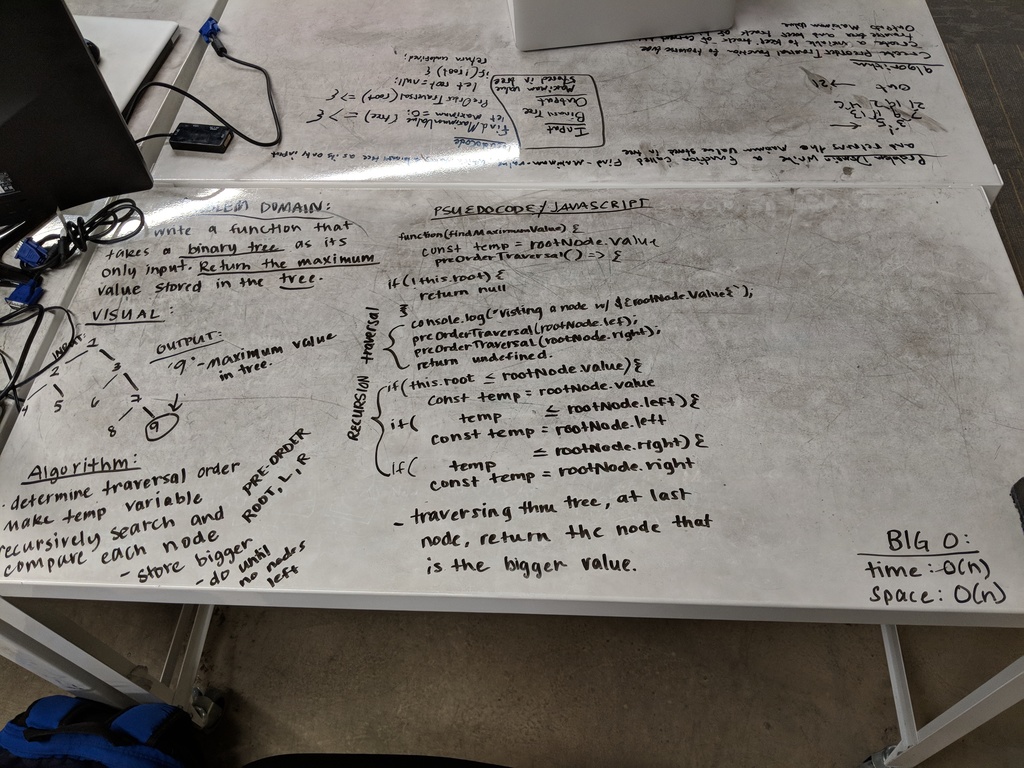 PROBLEM DOMAIN:
write a function that
takes a binary tree as its
only input. Return the maximum
value stored in the tree.
VISUAL:
INPUT:
1
2 3
4 5 6 7
8 9
OUTPUT:
"9" - maximum value
in tree.
Algorithm:
- determine traversal order
make temp variable
recursively search and
compare each node
- store bigger
- do until
no nodes
left
PRE-ORDER
ROOT, L, R
PSUEDOCODE/JAVASCRIPT
function(findMaximumValue) {
const temp = rootNode.value
preOrderTraversal() => {
if(!this.root) {
return null
}
console.log("Visting a node w/ ${rootNode.Value}`);
preOrderTraversal(rootNode.lef);
preOrderTraversal(rootNode.right);
return undefined.
RECURSION traversal
if(this.root ≤ rootNode.value){
const temp = rootNode.value
if( temp ≤ rootNode.left){
const temp = rootNode.left
if( temp ≤ rootNode.right) {
const temp = rootNode.right
- traversing thru tree, at last
node, return the node that
is the bigger value.
BIG O:
time: O(n)
space: O(n)
Problem Domain: Write a function called Find-maximum-value
and returns the maximum value stored in tree
Input
Binary Tree
Output
Maximum value
stored in tree
Pseudocode
FindMaximumValue (tree) => {
let maximum = 0;
PreOrderTraversal (root) => {
let root = null;
if(!root) {
return undefined;
Out
→ 21
algorithm
Create PreOrder Traversal Function to traverse tree
Create a variable to keep track of
Output Maximum value